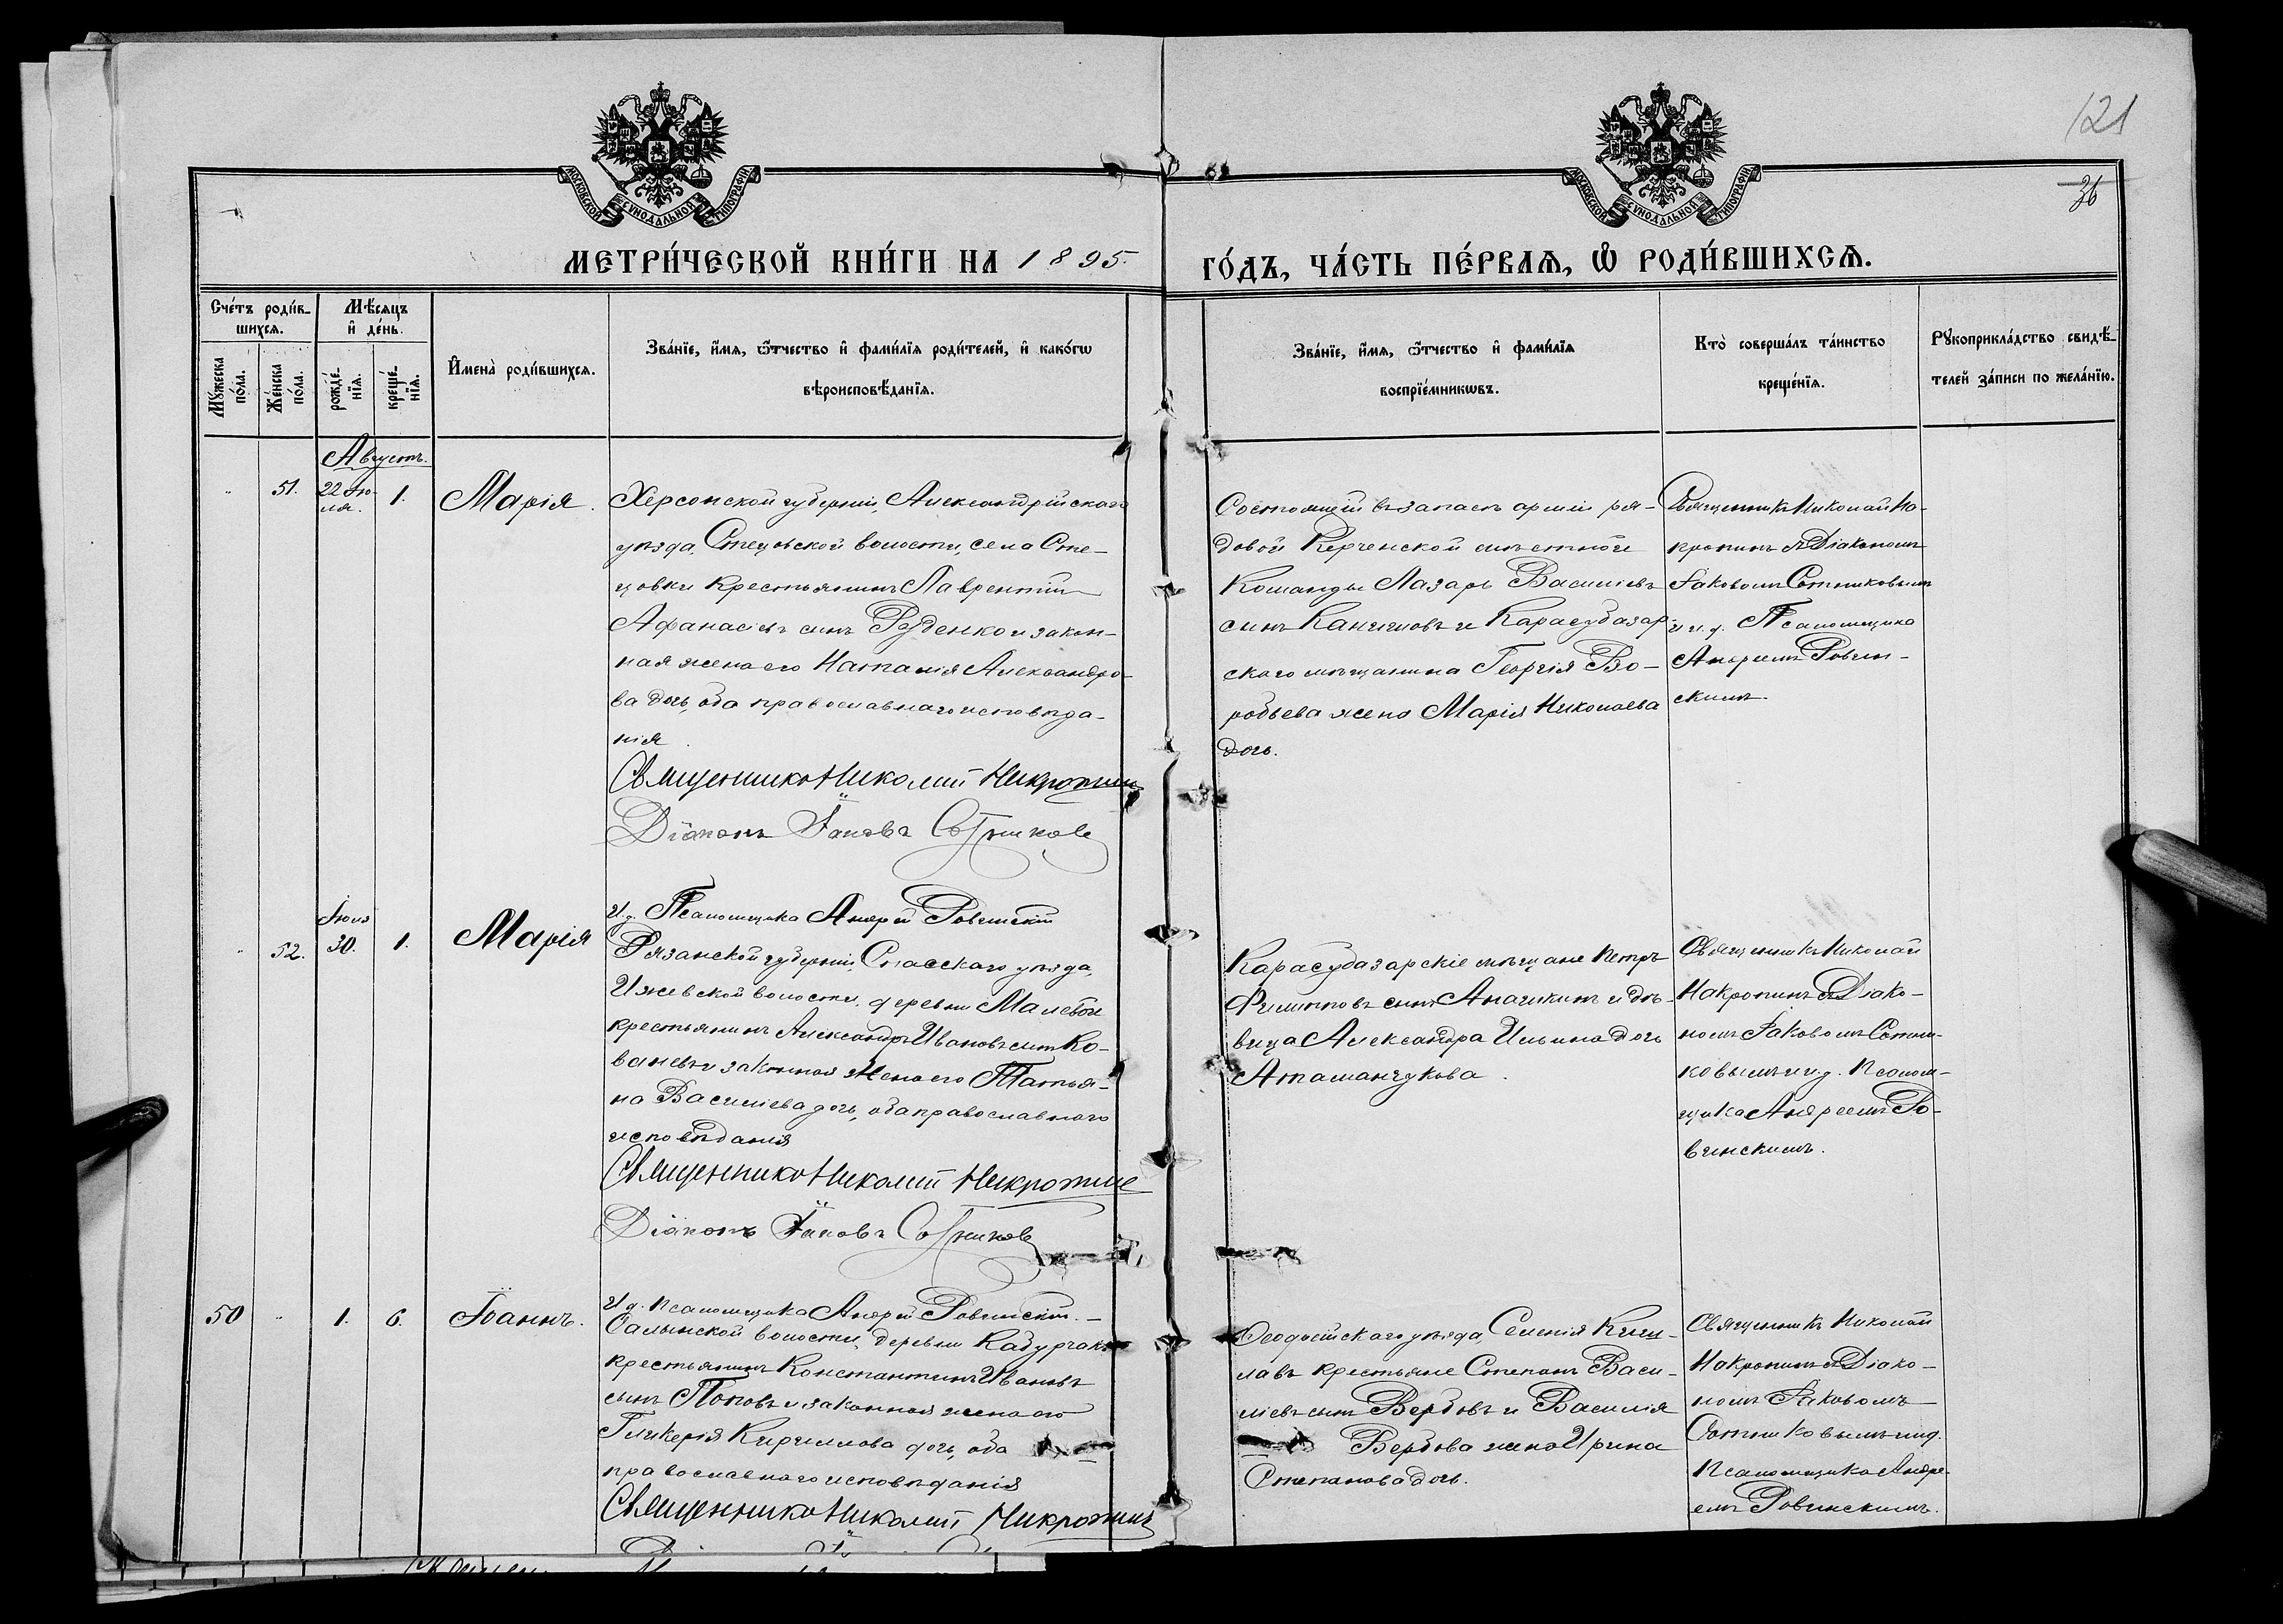 121
36
МОСКОВСКОЙ СѴНОДАЛЬНОЙ ТИПОГРАФІИ
МОСКОВСКОЙ СѴНОДАЛЬНОЙ ТИПОГРАФІИ
МЕТРИ́ЧЕСКОЙ КНИ́ГИ НА 1895.
ГО́ДЪ, ЧА́СТЬ ПЕ́РВАѦ, Ѽ РОДИ́ВШИХСѦ.
Сче́тъ роди́в-
шихсѧ.
Мѣ́сѧцъ
и҆ де́нь.
Мꙋ́жеска по́ла.
Же́нска по́ла.
рожде́нїѧ.
креще́нїѧ.
И҆мена̀ роди́вшихсѧ.
Зва́нїе, и҆́мѧ, ѿ́чество и҆ фами́лїѧ роди́телей, и҆ како́гѡ
вѣроисповѣ́данїѧ.
Зва́нїе, и҆́мѧ, ѿ́чество и҆ фами́лїѧ
воспрїе́мникѡвъ.
Кто̀ соверша́лъ та́инство
креще́нїѧ.
Рꙋкоприкла́дство свидѣ́-
телей за́писи по жела́нїю.
Августъ.
51.
22 Ію-
ля.
1.
Марія.
Херсонской губерніи, Александрійскаго
уѣзда, Стецовской волости, села Сте-
цовки крестьянинъ Лаврентій
Афанасіевъ сынъ Руденко и закон-
ная жена его Наталія Александро-
ва дочь, оба православнаго исповѣда-
нія.
Священникъ Николай Накропинъ
Діаконъ Іаковъ Сотниковъ
Состоящій въ запасѣ арміи ря-
довой Керченской мѣстной
Команды Лазарь Василіевъ
сынъ и Карасубазар-
скаго мѣщанина Георгія Во-
робьева жена Марія Николаева
дочь.
Священникъ Николай На-
кропинъ съ Діакономъ
Іаковомъ Сотниковымъ
и и. д. Псаломщика
Андреемъ Ровин-
скимъ.
И. д. Псаломщика Андрей Ровинскій
52.
Іюля
30.
1.
Марія
Рязанской губерніи, Спасскаго уѣзда,
Ижевской волости, деревни
крестьянинъ Александръ Ивановъ сынъ Ко-
ваневъ и законная жена его Татья-
на Василіева дочь, оба православнаго
исповѣданія
Священникъ Николай Накропинъ
Діаконъ Іаковъ Сотниковъ
Карасубазарскіе мѣщане Петръ
Филипповъ сынъ и дѣ-
вица Александра Ильина дочь
Атаманчукова.
Священникъ Николай
Накропинъ съ Діако-
номъ Іаковомъ Сотни-
ковымъ и и. д. Псалом-
щика Андреемъ Ро-
винскимъ.
И. д. Псаломщика Андрей Ровинскій.
50
1.
6.
Іоаннъ.
Салынской волости, деревни Кабурчакъ
крестьянинъ Константинъ Ивановъ
сынъ Поповъ и законная жена его
Гликерія Кириллова дочь, оба
православнаго исповѣданія
Священникъ Николай Накропинъ
Ѳеодосійскаго уѣзда, Селенія
крестьяне Степанъ Васи-
ліевъ сынъ Вербовъ и Василія
Вербова жена Ирина
Степанова дочь.
Священникъ Николай
Накропинъ съ Діако-
номъ Іаковомъ
Сотниковымъ и и. д.
Псаломщика Андре-
емъ Ровинскимъ.